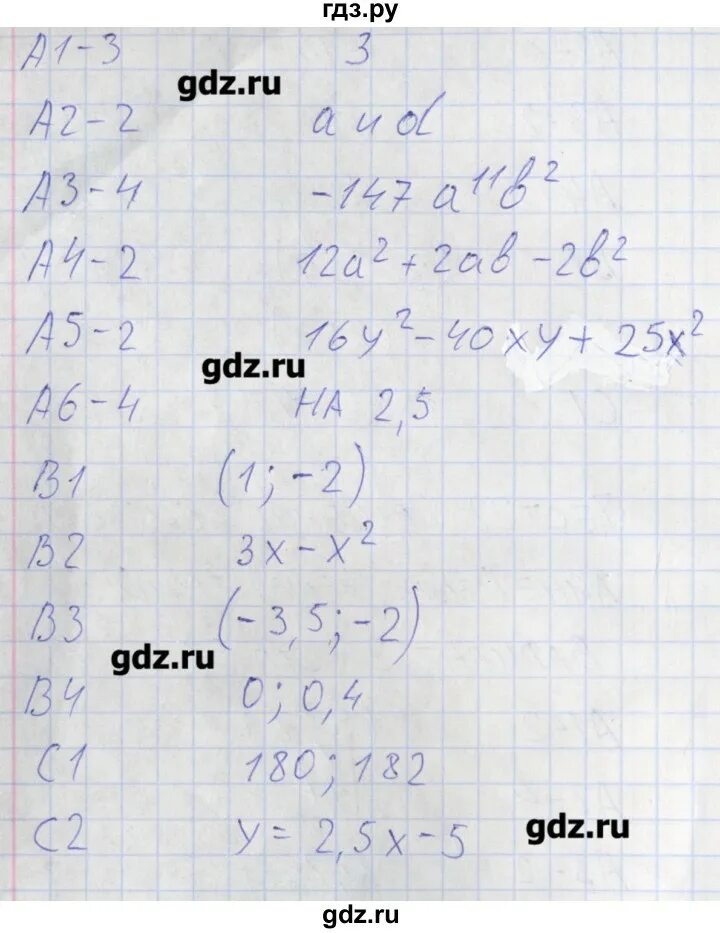 гдз.ру
А1-3 3
gdz.ru
А2-2 а и d
А3-4 -147 a¹¹b²
А4-2 12a² + 2ab - 2b²
А5-2 16y² - 40xy + 25x²
gdz.ru
А6-4 НА 2,5
В1 (1; -2)
В2 3x - x²
В3 (-3,5; -2)
gdz.ru
В4 0; 0,4
С1 180; 182
С2 y = 2,5x - 5
gdz.ru
gdz.ru